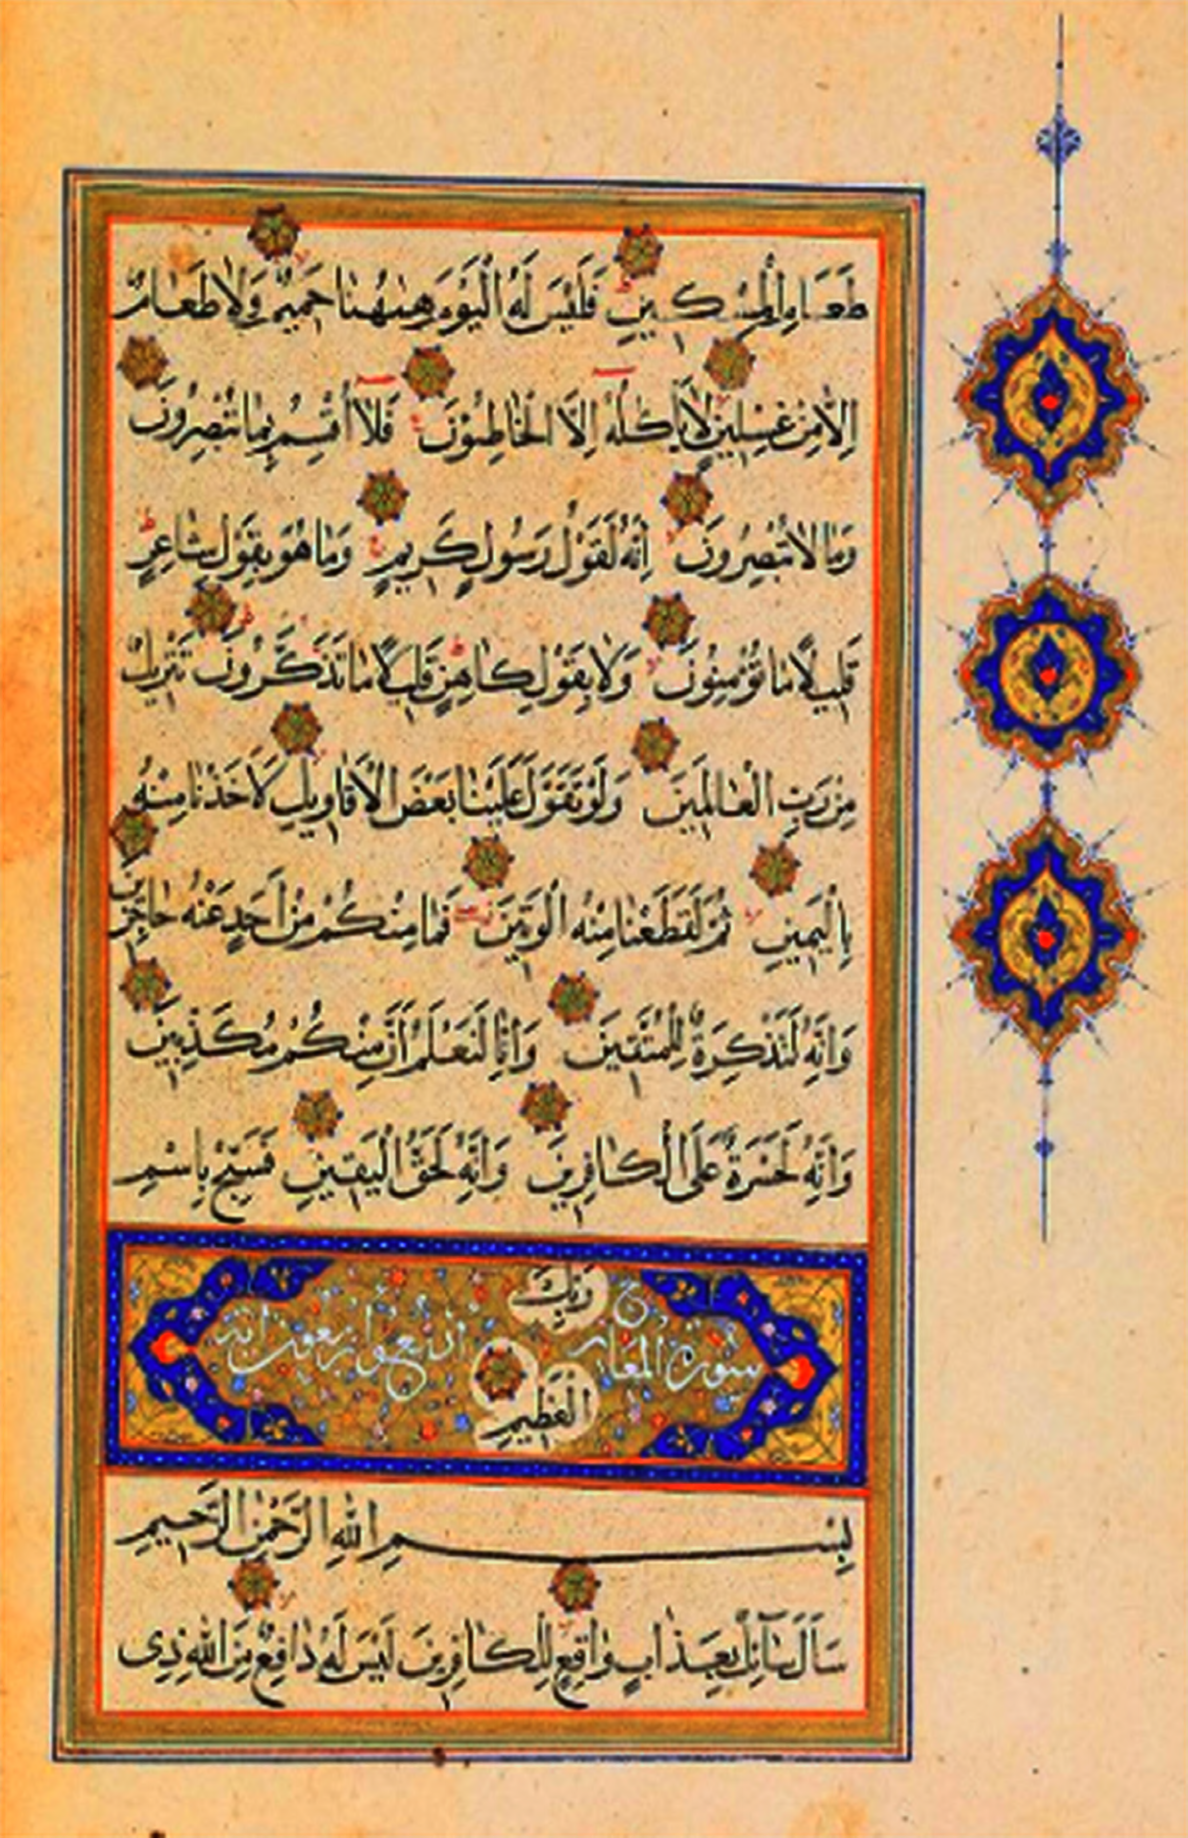 طَعَامِ الْمِسْكِينِ فَلَيْسَ لَهُ الْيَوْمَ هٰهُنَا حَمِيمٌ وَلَا طَعَامٌ
اِلَّا مِنْ غِسْلِينٍ لَا يَأْكُلُهُ اِلَّا الْخَاطِئُونَ فَلَا اُقْسِمُ بِمَا تُبْصِرُونَ
وَمَا لَا تُبْصِرُونَ اِنَّهُ لَقَوْلُ رَسُولٍ كَرِيمٍ وَمَا هُوَ بِقَوْلِ شَاعِرٍ
قَلِيلًا مَا تُؤْمِنُونَ وَلَا بِقَوْلِ كَاهِنٍ قَلِيلًا مَا تَذَكَّرُونَ تَنْزِيلٌ
مِنْ رَبِّ الْعَالَمِينَ وَلَوْ تَقَوَّلَ عَلَيْنَا بَعْضَ الْاَقَاوِيلِ لَاَخَذْنَا مِنْهُ
بِالْيَمِينِ ثُمَّ لَقَطَعْنَا مِنْهُ الْوَتِينَ فَمَا مِنْكُمْ مِنْ اَحَدٍ عَنْهُ حَاجِزِينَ
وَاِنَّهُ لَتَذْكِرَةٌ لِلْمُتَّقِينَ وَاِنَّا لَنَعْلَمُ اَنَّ مِنْكُمْ مُكَذِّبِينَ
وَاِنَّهُ لَحَسْرَةٌ عَلَى الْكَافِرِينَ وَاِنَّهُ لَحَقُّ الْيَقِينِ فَسَبِّحْ بِاسْمِ
رَبِّكَ
سورة المعارج اربع واربعون اية
الْعَظِيمِ
بِسْمِ اللهِ الرَّحْمٰنِ الرَّحِيمِ
سَاَلَ سَآئِلٌ بِعَذَابٍ وَاقِعٍ لِلْكَافِرِينَ لَيْسَ لَهُ دَافِعٌ مِنَ اللهِ ذِى